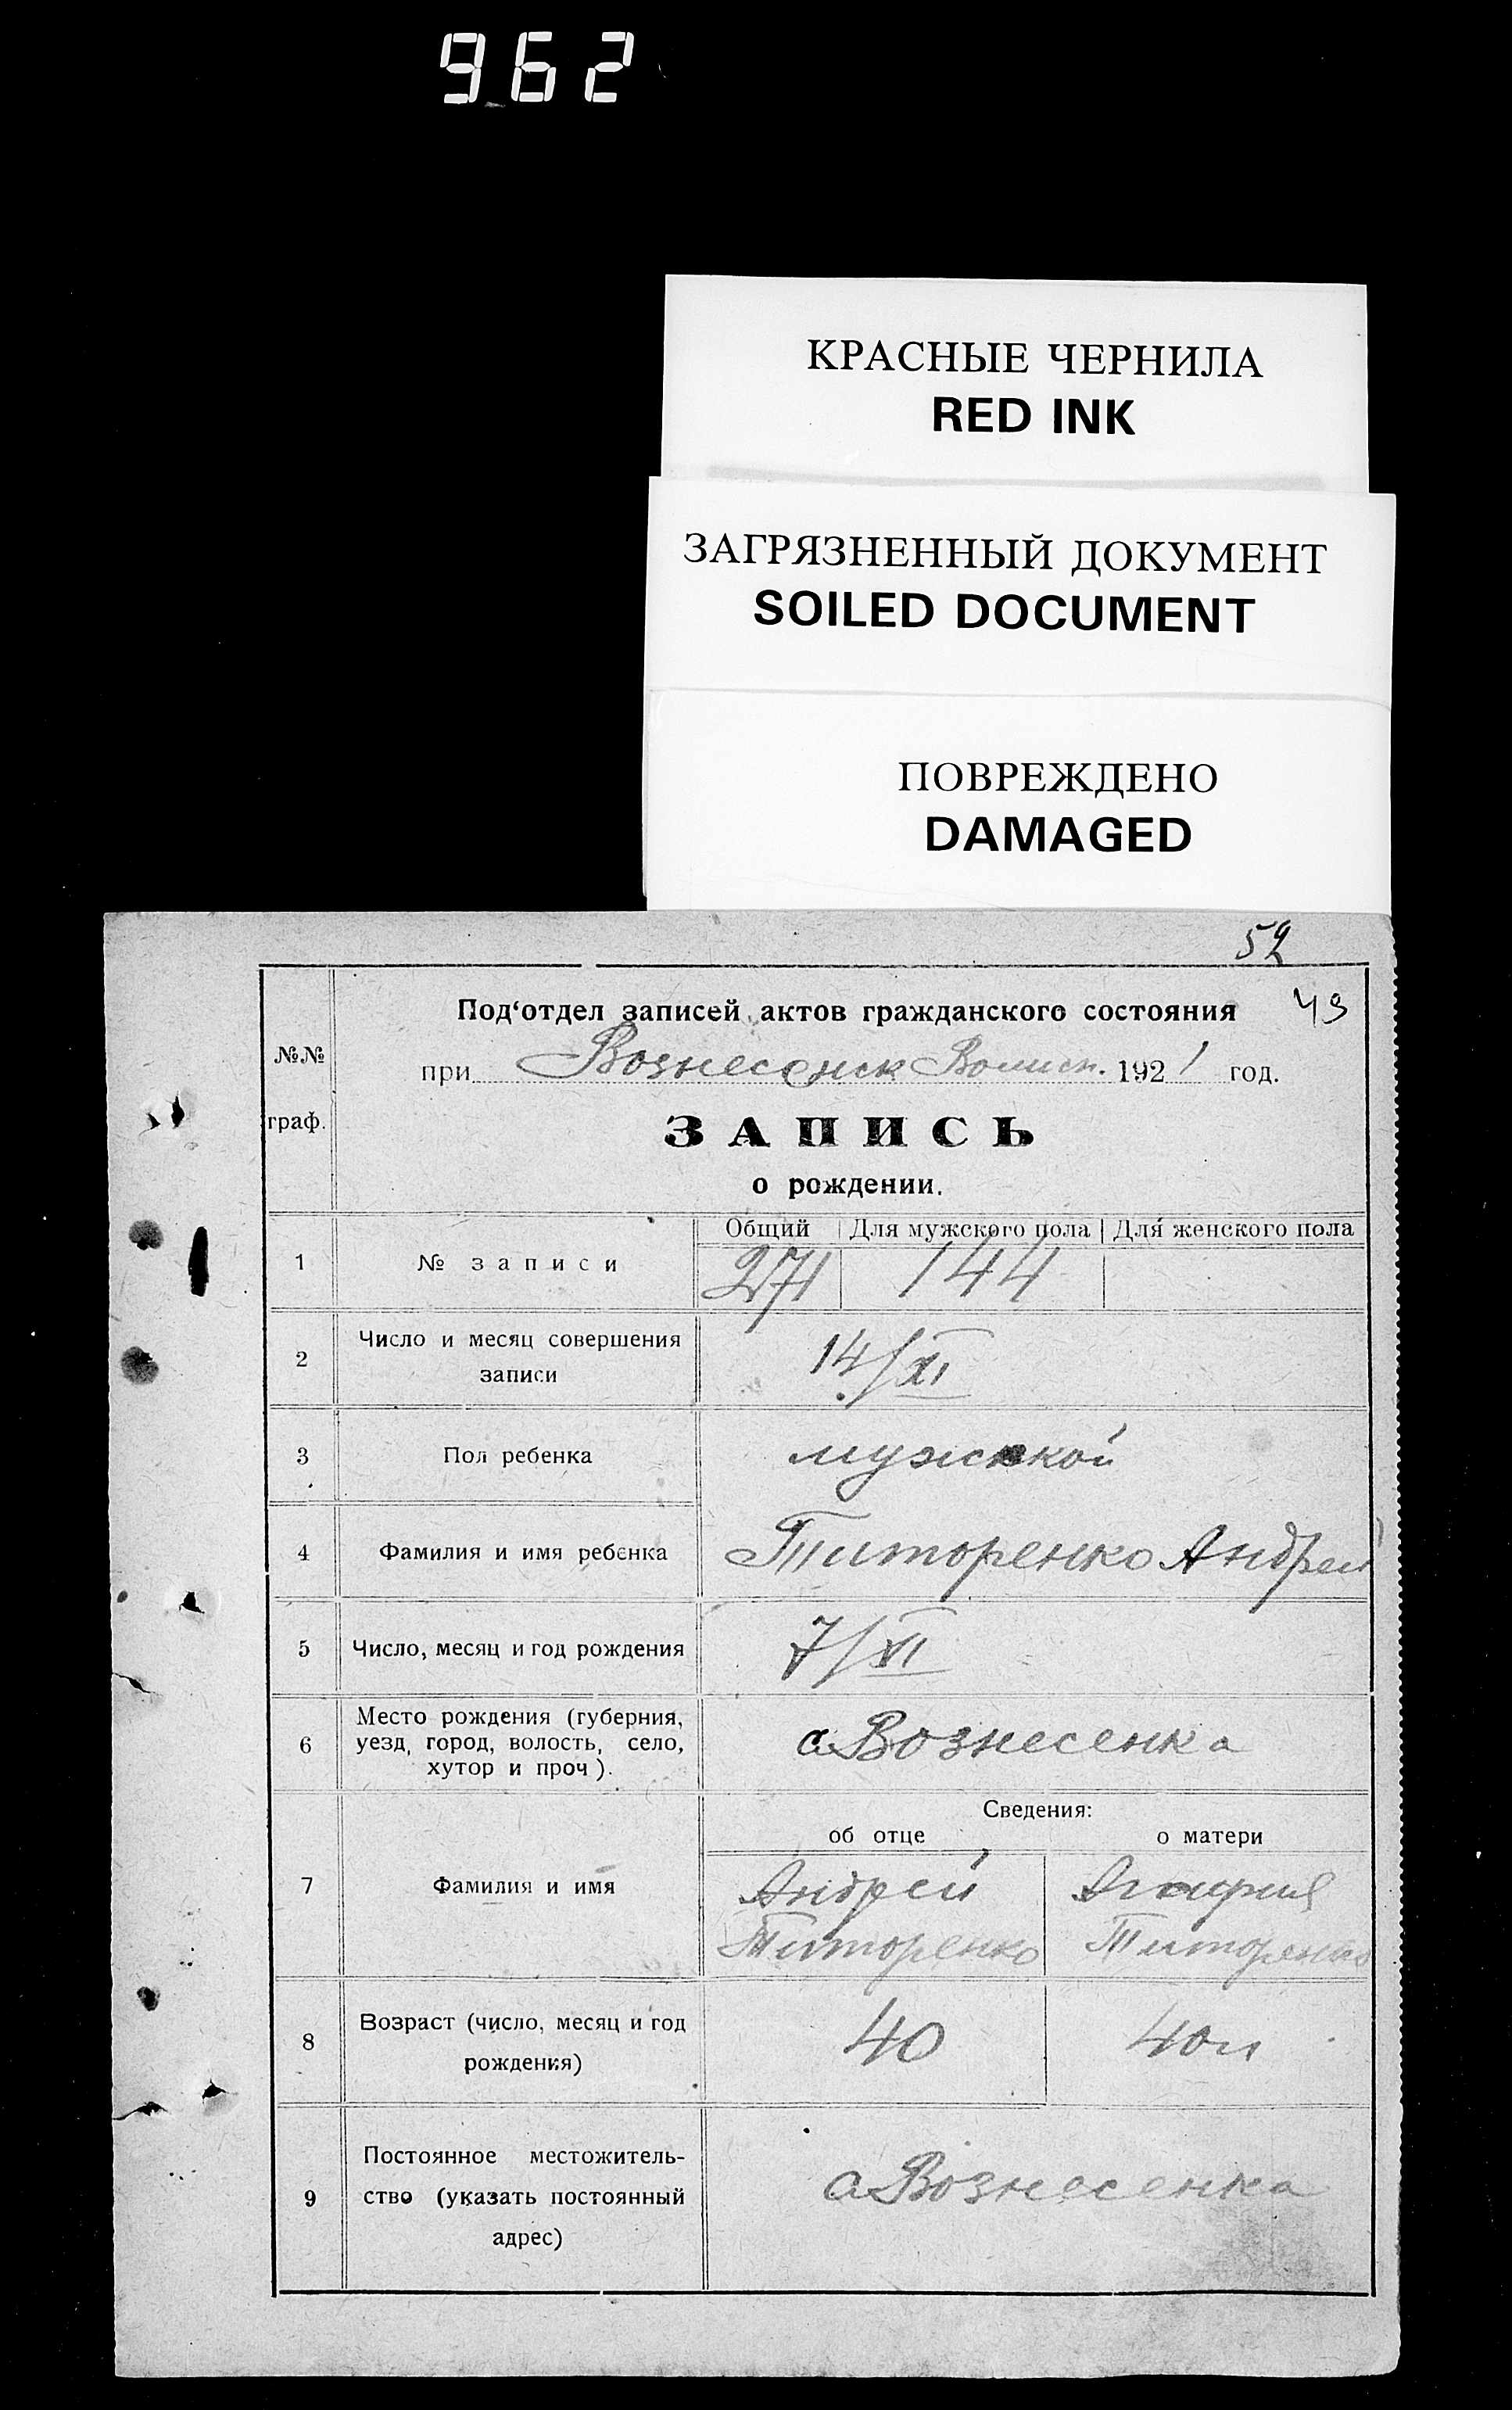 962
КРАСНЫЕ ЧЕРНИЛА
RED INK
ЗАГРЯЗНЕННЫЙ ДОКУМЕНТ
SOILED DOCUMENT
ПОВРЕЖДЕНО
DAMAGED
52
Под‘отдел записей актов гражданского состояния
49
№№ граф.
при Вознесенск 1921 год.
ЗАПИСЬ
о рождении.
Общий Для мужского пола Для женского пола
1 № записи 271 144
2 Число и месяц совершения
записи
14/XI
3 Пол ребенка мужской
4 Фамилия и имя ребенка Титоренко Андрей
5 Число, месяц и год рождения 7/XI
6 Место рождения (губерния,
уезд, город, волость, село,
хутор и проч).
с Вознесенка
Сведения:
об отце о матери
7 Фамилия и имя
Андрей
Титоренко Титоренко
8 Возраст (число, месяц и год
рождения)
40
9 Постоянное местожитель-
ство (указать постоянный
адрес)
с Вознесенка